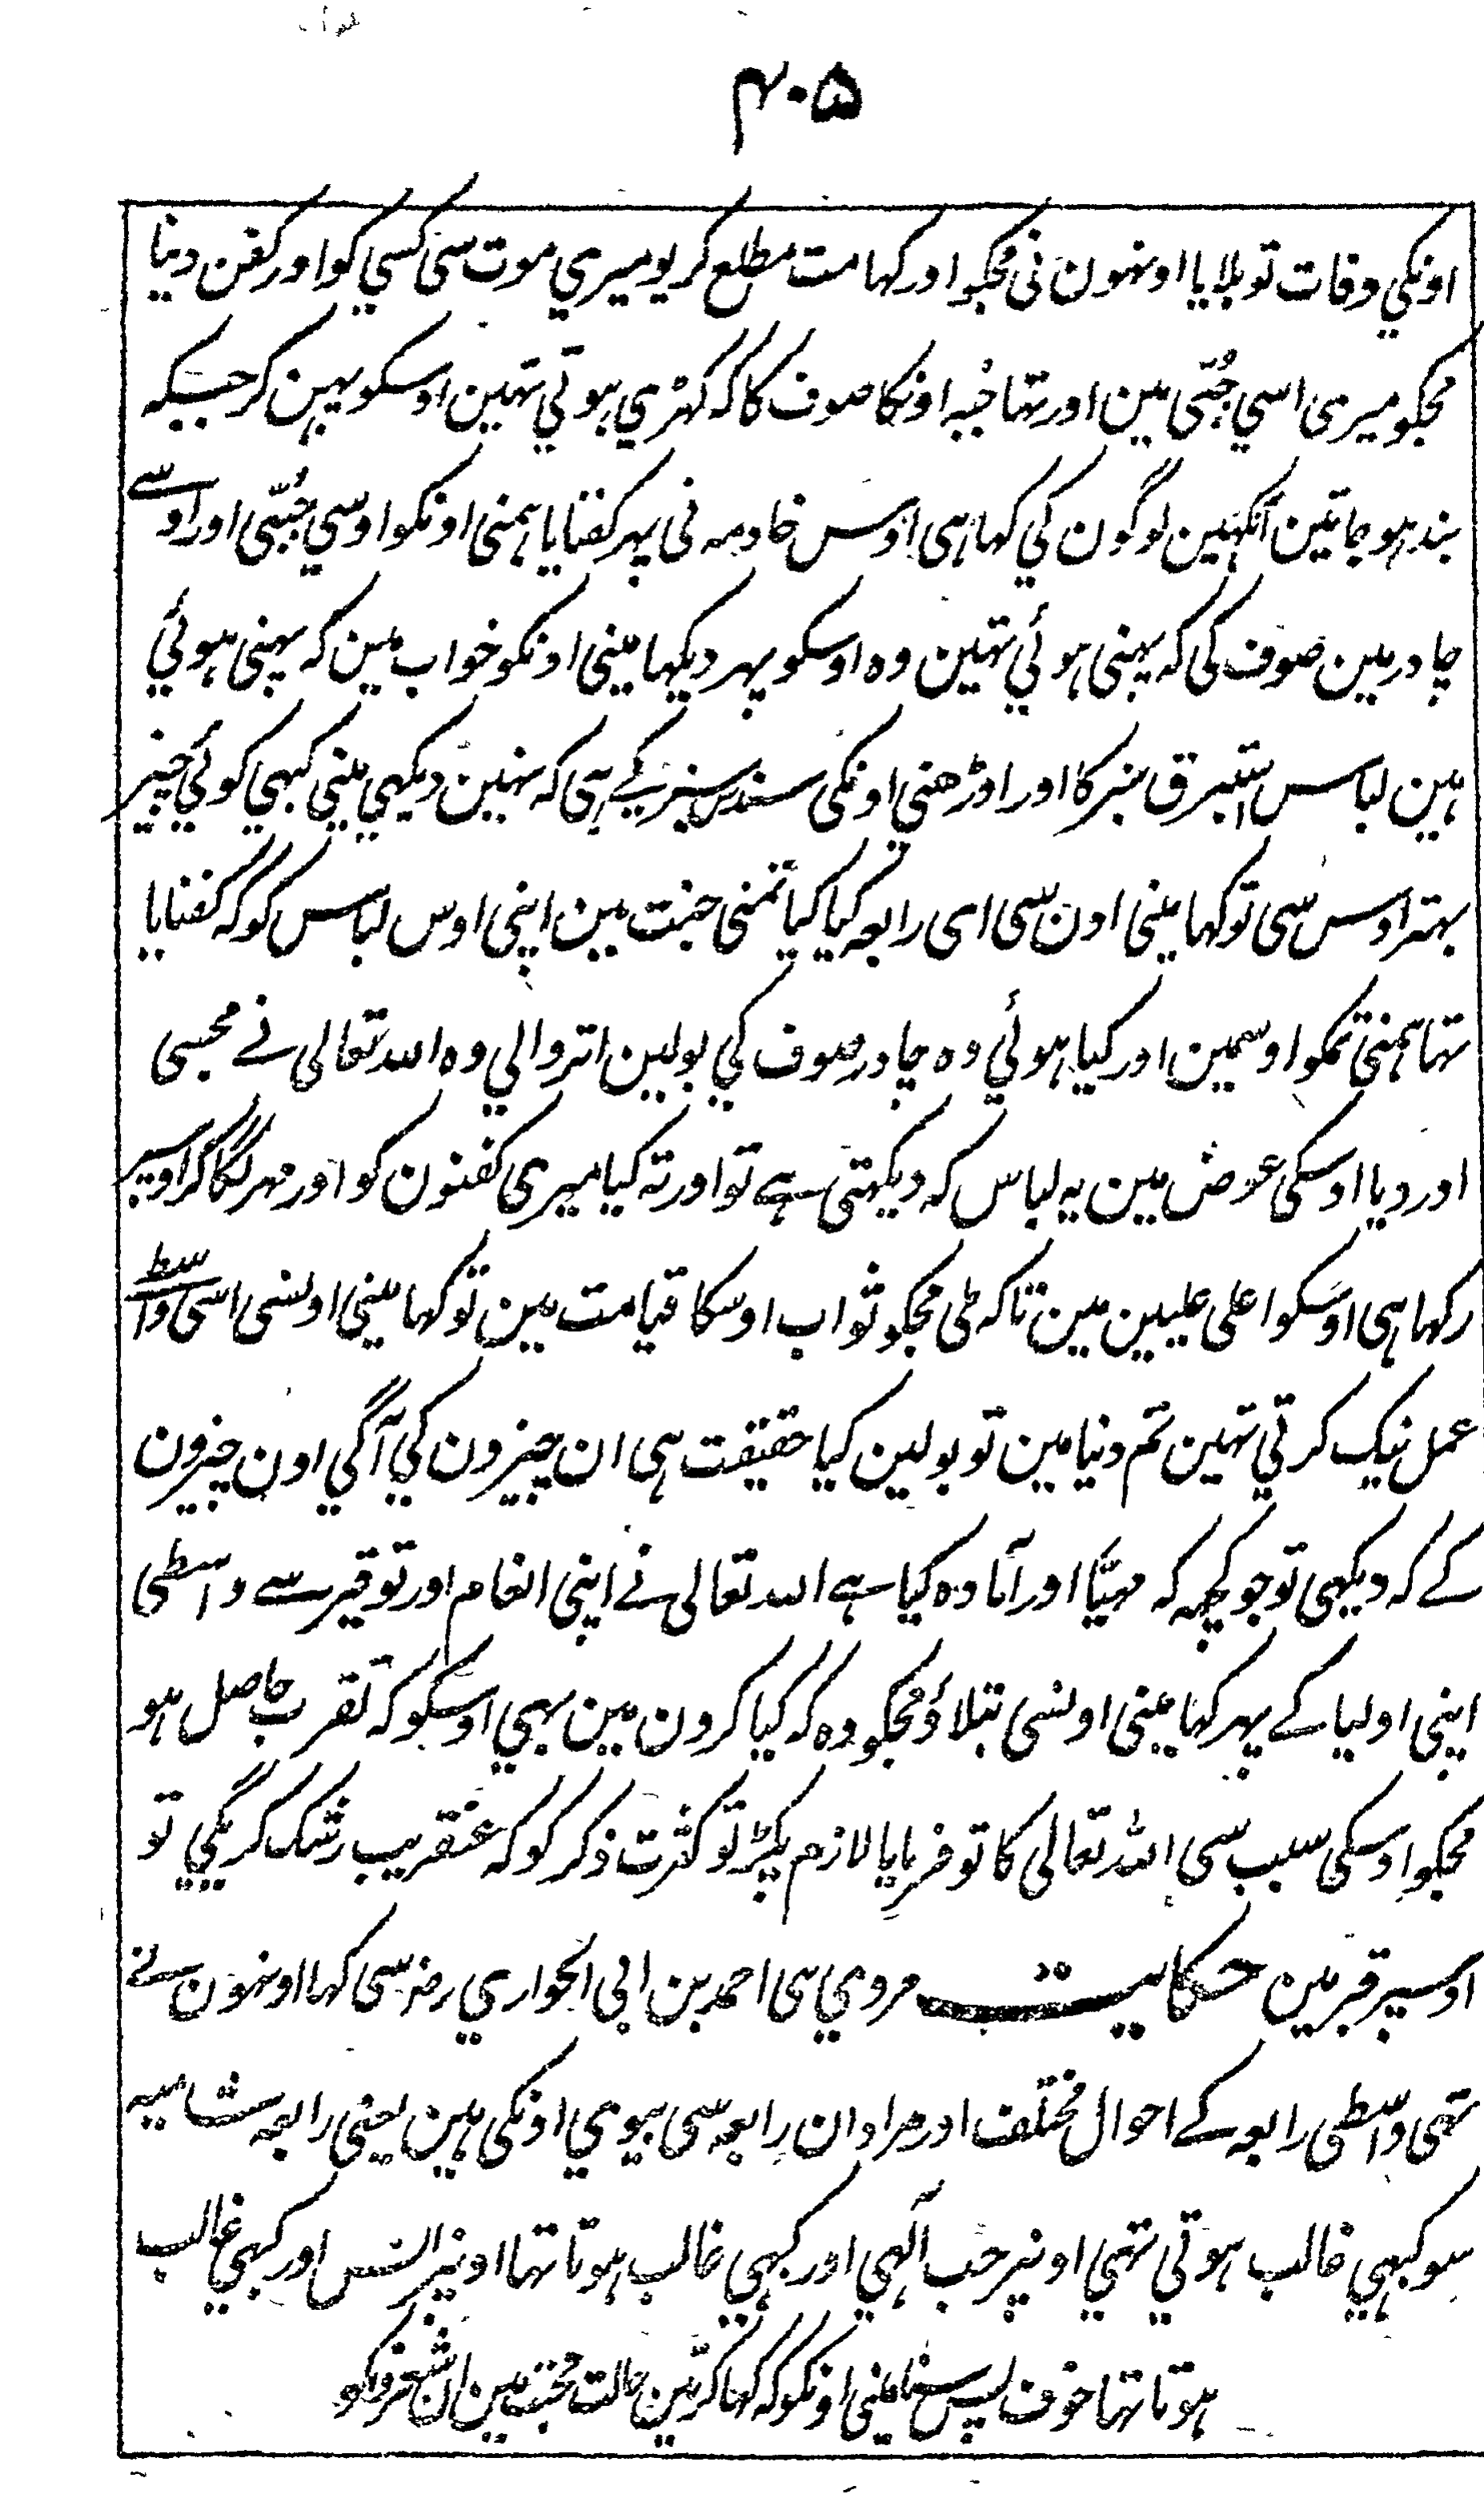 ۴۰۵
اونکي وفات تو بلایا اونہون نی مجکو اور کہا مت مطلع کریو میري موت سی کسي کو اور کفن دینا
مجکو میری اسي جُبّی مین اور تہا جُبہ اونکا صوف کا کہ کہڑي ہوتي تہین اوسکو پہن کر جبکہ
بند ہو جاتین آنکہین لوگون کی کہا ہی اوس خادمہ نی پہر کفنایا ہمنی اونکو اوسي جُبّی اور اوسے
چادر مین صوف کی کہ پہنی ہوئي تہین وہ اوسکو پہر دیکہا مینی اونکو خواب مین کہ پہنی ہوئي
ہین لباس استبرق سبز کا اور اوڑھني اونکی سندس سبز کے ہی کہ نہین دیکہي میني کبہي کوئي چیز
بہتر اوس سی تو کہا مینی اون سی ای رابعہ کیا کیا تمنی جنت مین اپنی اوس لباس کو کہ کفنایا
تہا ہمنی تمکو اوسمین اور کیا ہوئي وہ چادر صوف کي بولین اتروالي وہ اللہ تعالی نے مجسی
اور دیا اوسکی عوض مین یہ لباس کہ دیکہتی ہے تو اور تہ کیا میری کفنون کو اور مہر لگا کر اوسپر
رکہا ہی اوسکو اعلی علیین مین تاکہ ملی مجکو ثواب اوسکا قیامت مین تو کہا مینی اونسی اسی واسطے
عمل نیک کرتي تہین تم دنیا مین تو بولین کیا حقیقت ہی ان چیزون کي آگي اون چیزون
کے کہ دیکہی تو جو کچہ کہ مہیّا اور آمادہ کیا ہے اللہ تعالی نے اپنی انعام اور توقیر سے واسطی
اپنی اولیا کے پہر کہا مینی اونسی بتلاؤ مجکو وہ کہ کیا کرون مین بہي اوسکو کہ تقرب حاصل ہو
مجکو اوسکی سبب سی اللہ تعالی کا تو فرمایا لازم پکڑ تو کثرت ذکر کو کہ عنقریب رشک کریگي تو
اوسپر قبر مین حکایت مروي ہی احمد بن ابی الحواري رضہ سی کہا اونہون نے
تہی واسطی رابعہ کے احوال مختلف اور مراد ان رابعہ سی بیوي اونکی ہین یعنی رابعہ شامیہ
سو کبہي غالب ہوتي تہي اونپر حب آلہي اور کبہي غالب ہوتا تہا اونپر انس اور کبہي غالب
ہوتا تہا خوف پس سنا مینی اونکو کہ کہا کرتین حالت محبت مین ان شعرونکو